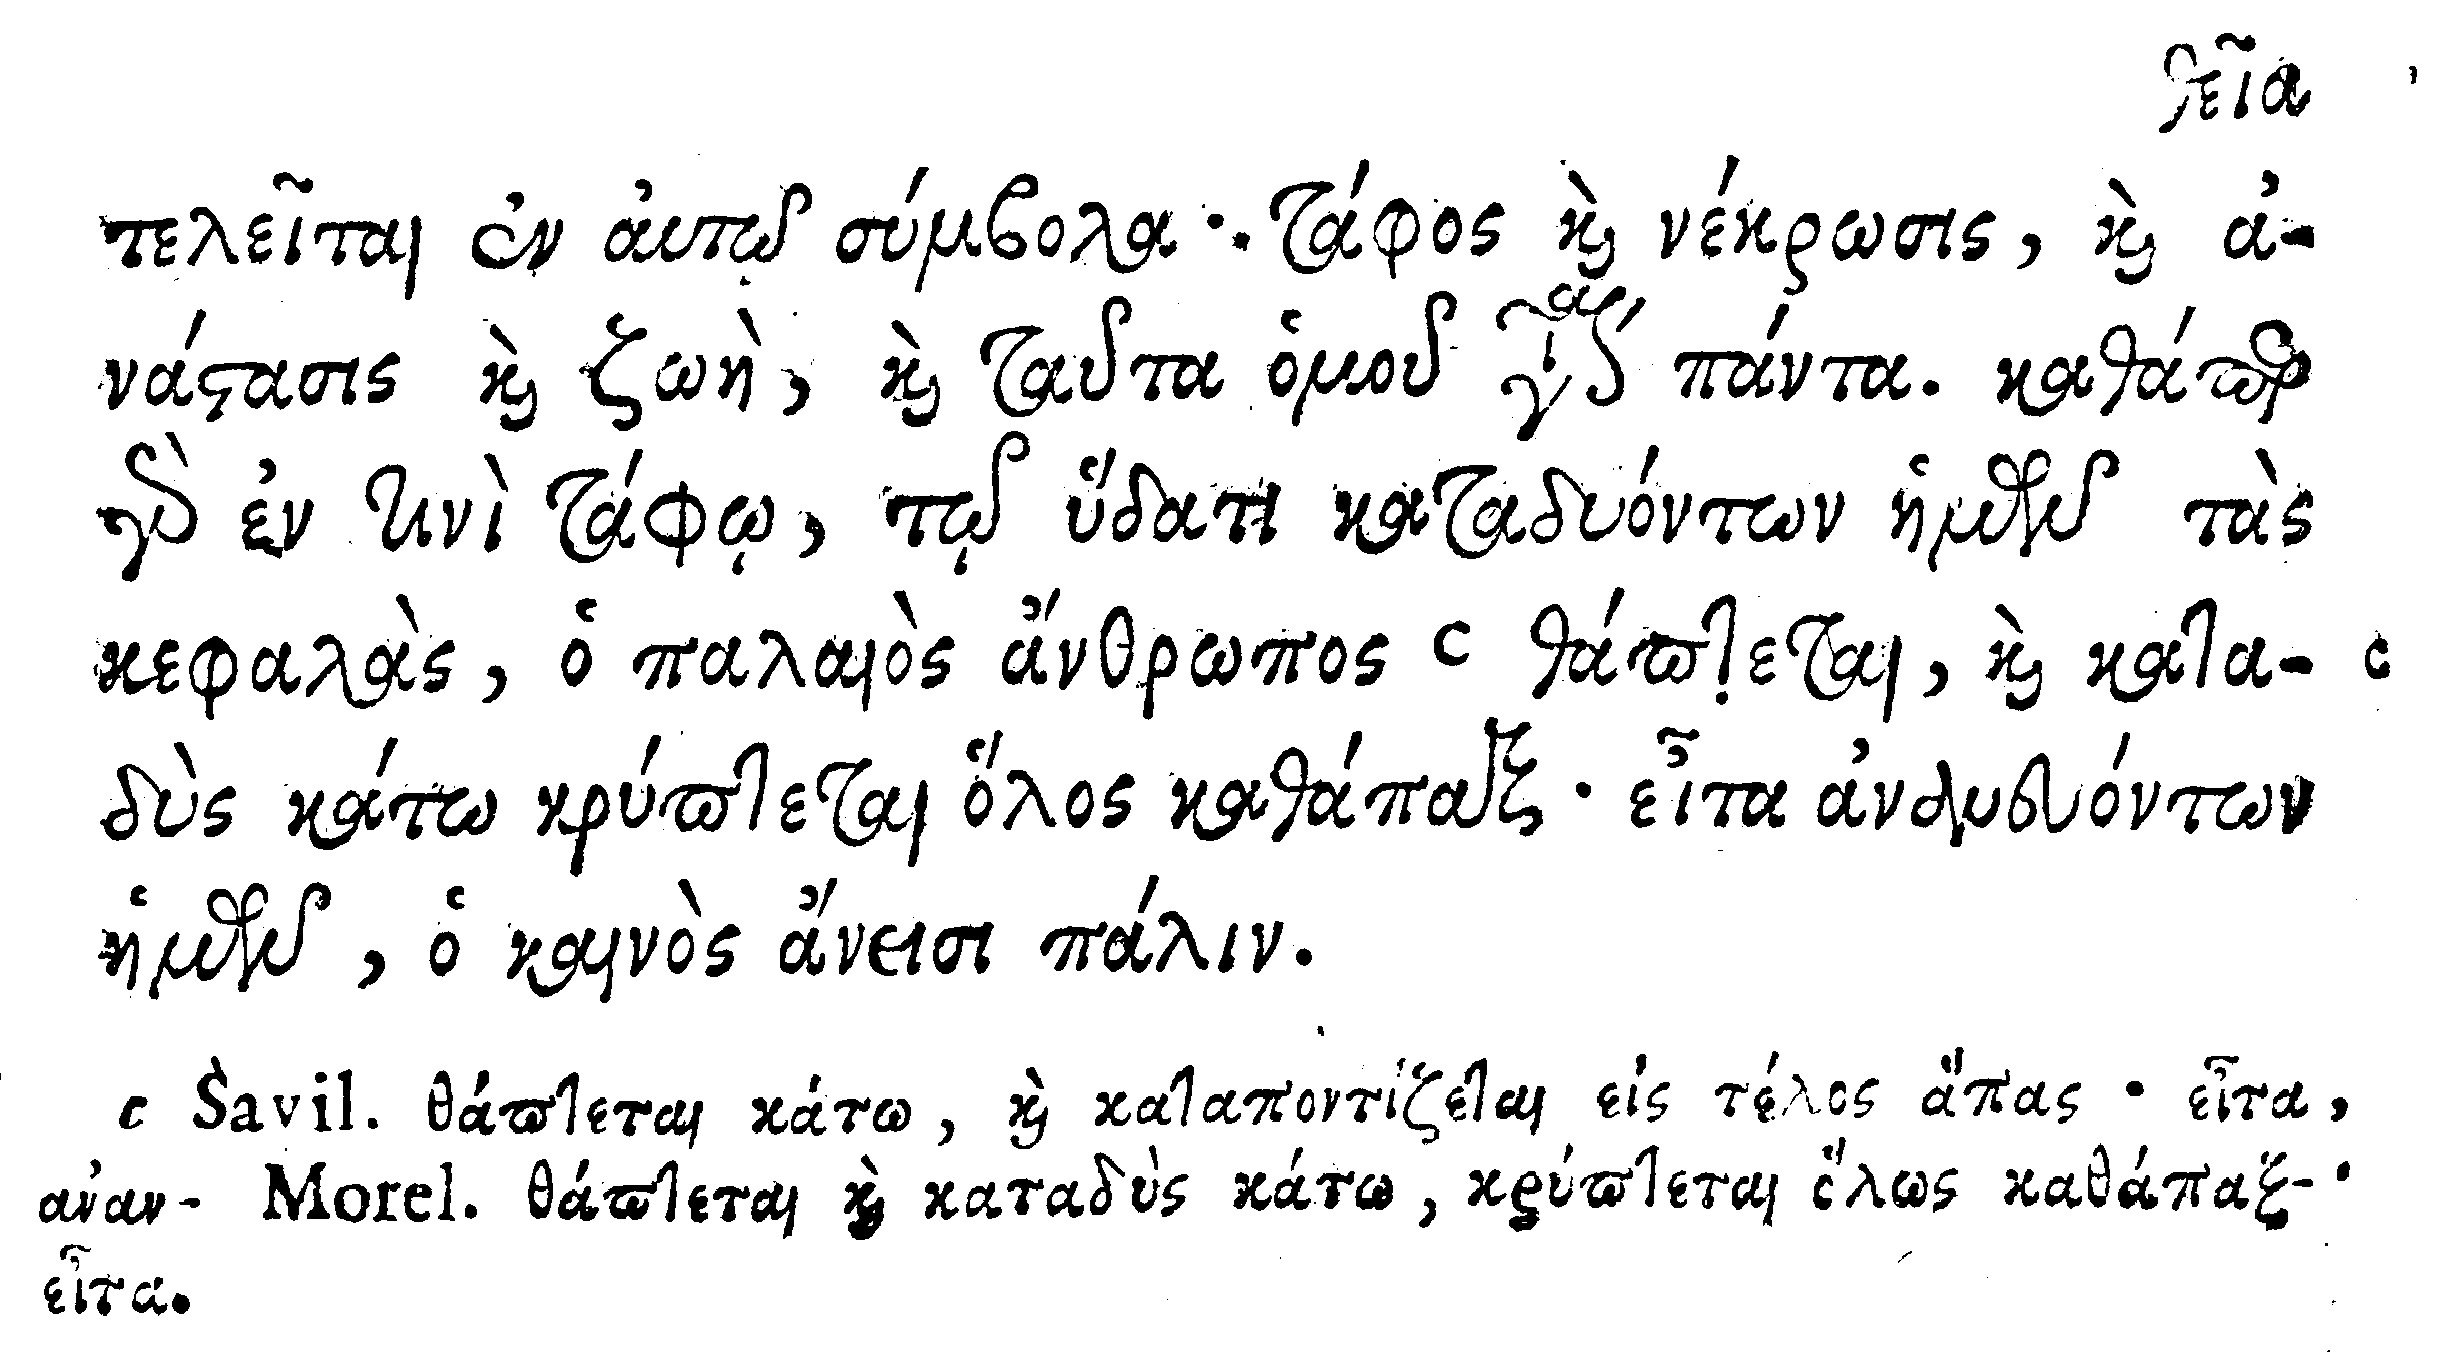 θεῖα
τελεῖται ἐν αὐτῷ σύμβολα· τάφος καὶ νέκρωσις, καὶ ἀ-
νάστασις καὶ ζωὴ, καὶ ταῦτα ὁμοῦ γίνεται πάντα. καθάπερ
γὰρ ἐν τινὶ τάφῳ, τῷ ὕδατι καταδυόντων ἡμῶν τὰς
κεφαλὰς, ὁ παλαιὸς ἄνθρωπος c θάπτεται, καὶ κατα- c
δὺς κάτω κρύπτεται ὅλος καθάπαξ· εἶτα ἀνανευόντων
ἡμῶν, ὁ καινὸς ἄνεισι πάλιν.
c Savil. θάπτεται κάτω, καὶ καταποντίζεται εἰς τέλος ἅπας· εἶτα,
ἀναν- Morel. θάπτεται καὶ καταδὺς κάτω, κρύπτεται ὅλως καθάπαξ·
εἶτα.